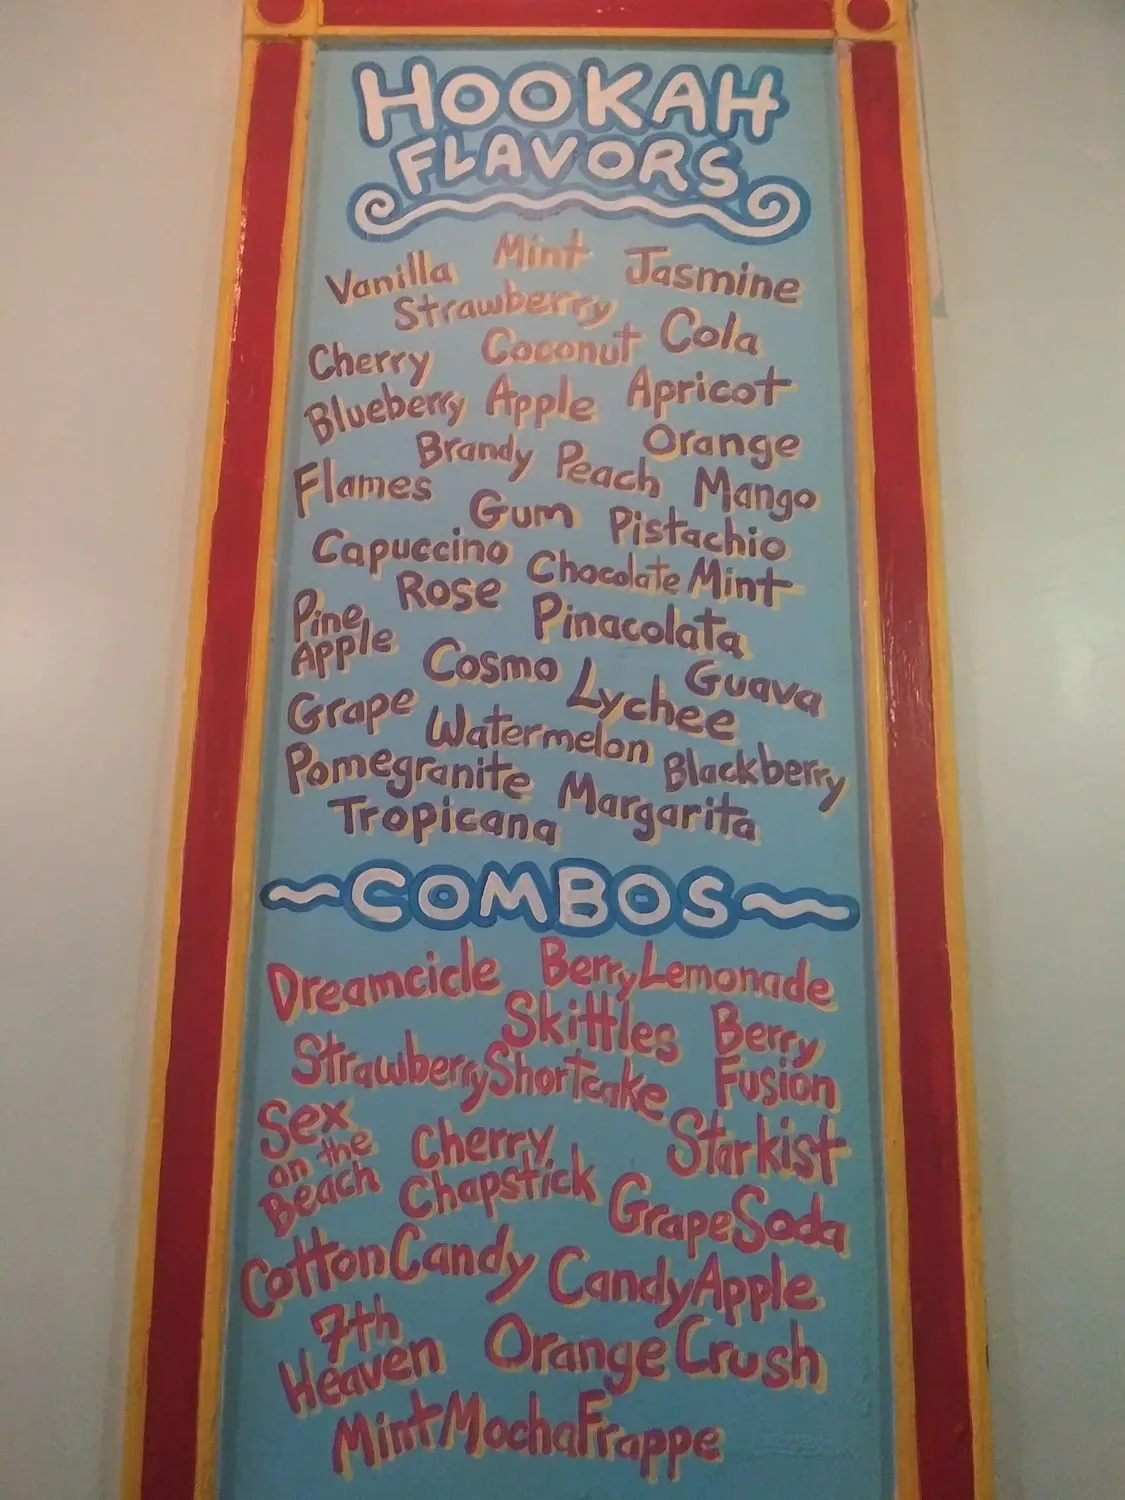 HOOKAH
FLAVORS
Vanilla Mint Jasmine
Strawberry Cola
Cherry Coconut
Blueberry Apple Apricot
Brandy Peach Orange
Flames Gum Mango
Capuccino Pistachio
Rose Chocolate Mint
Pine
Apple Pinacolata
Cosmo Guava
Grape Lychee
Watermelon Blackberry
Pomegranite Margarita
Tropicana
~COMBOS~
Dreamcicle Berry Lemonade
Skittles Berry
Fusion
Strawberry Shortcake
Sex
on the
Beach
Cherry
Chapstick
Starkist
Grape Soda
Cotton Candy Candy Apple
7th
Heaven Orange Crush
Mint Mocha Frappe